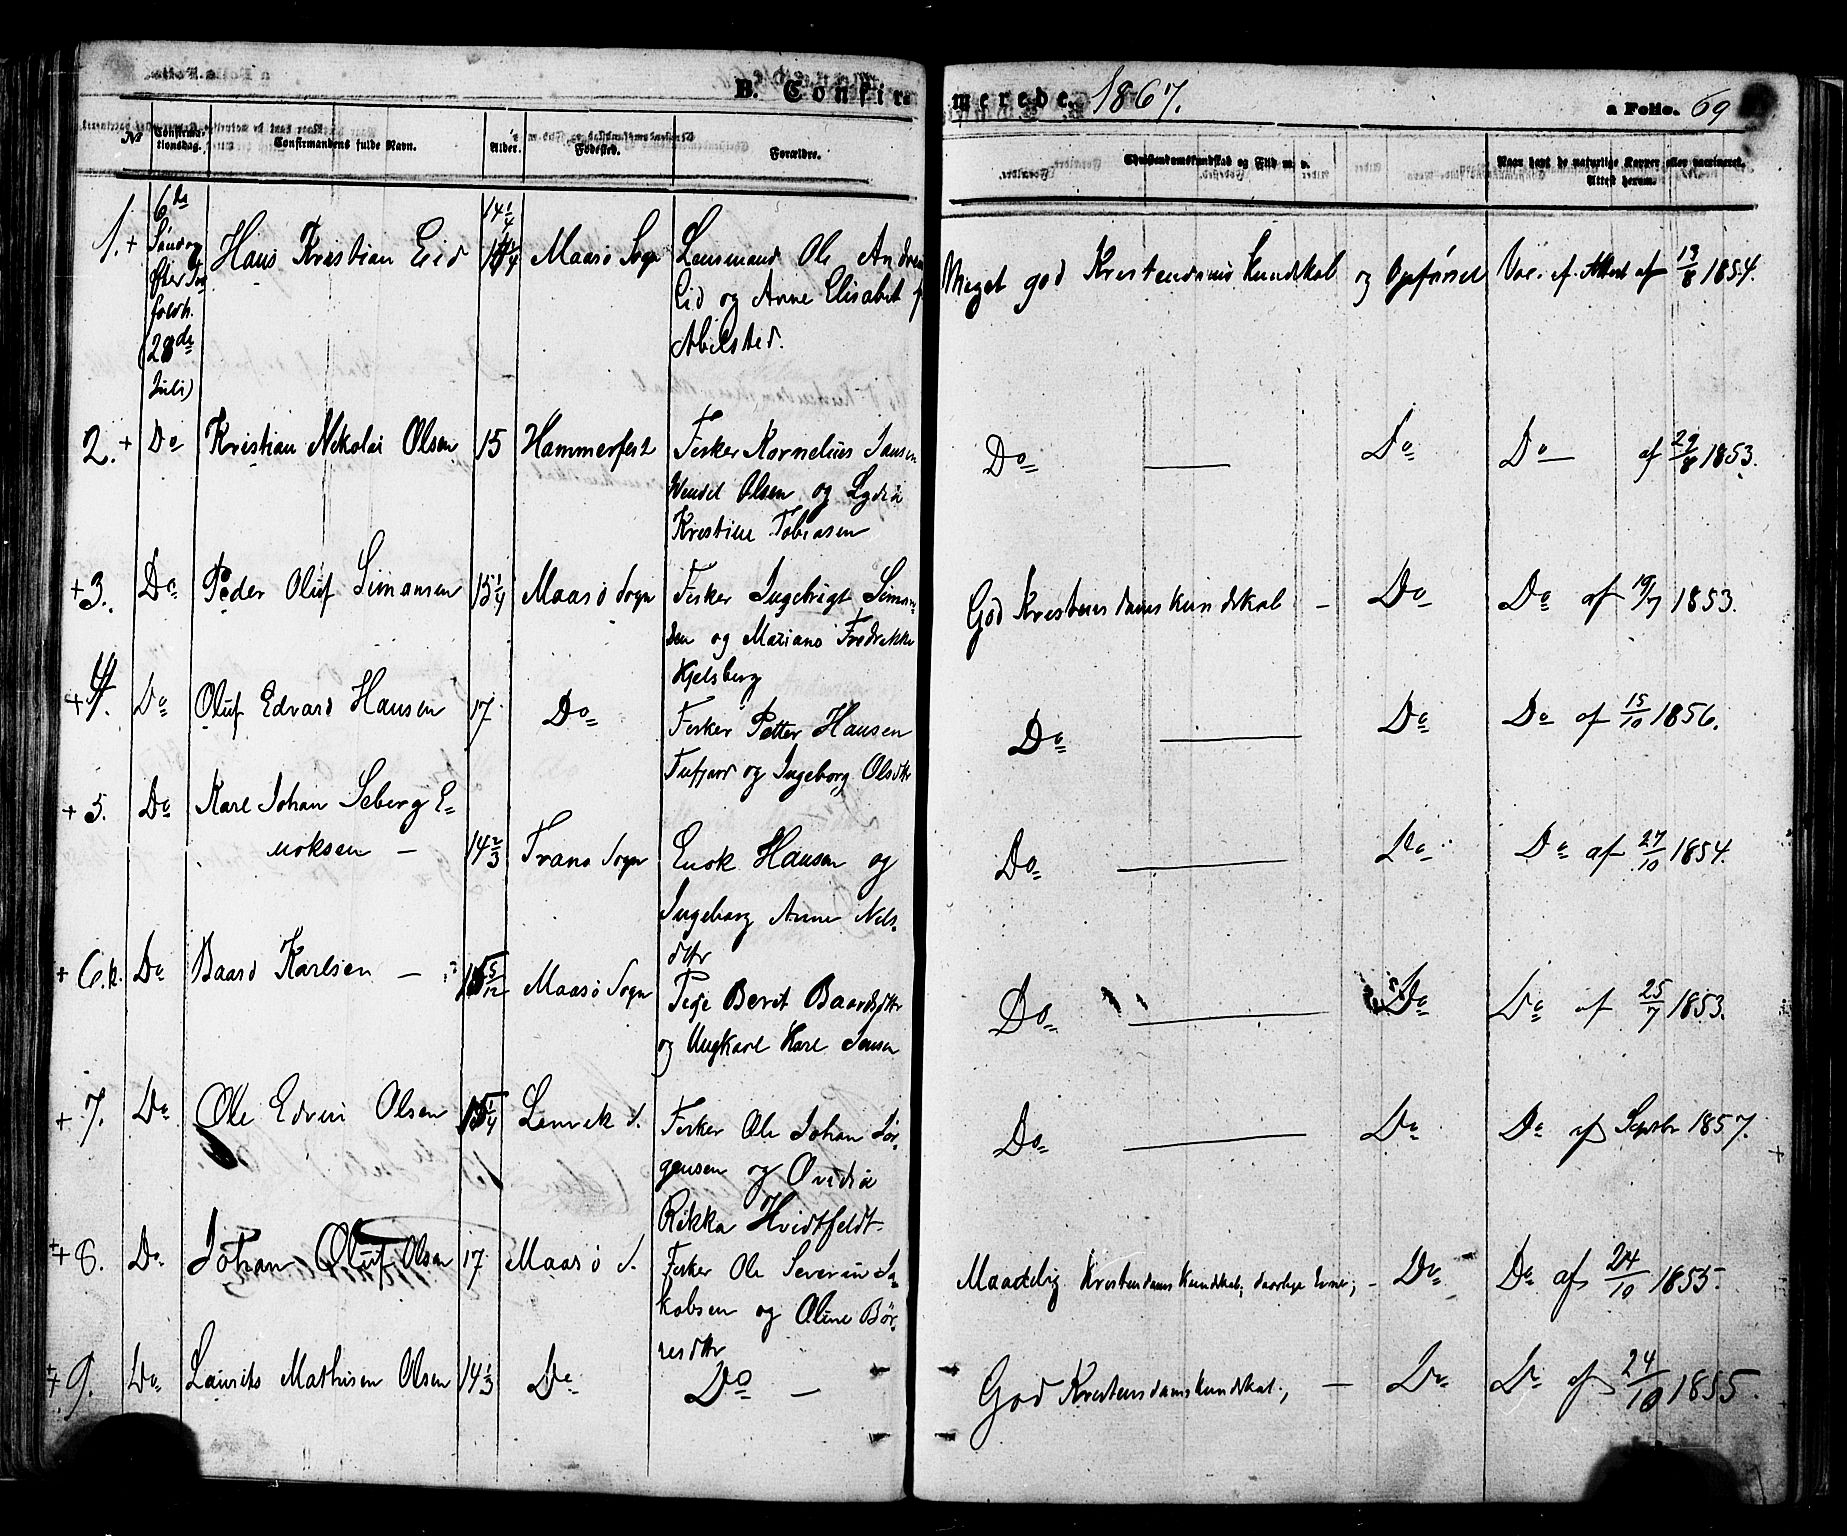 B. Confirmerede. 1867. a Folio. 69
No Confirmationsdag. Confirmandens fulde Navn. Alder. Fødested. Forældre. Christendomskundskab og Flid m. v. Naar havt de naturlige Kopper eller vaccineret. Attest herom.
1. + 6te Søndag Hans Kristian Eid 14 1/4 Maasø Sogn Lensmand Ole Andreas Meget god Kristendomskundskab og Opførsel Vac. ef. Attest af 13/8 1854.
Efter Tre Eid og Anne Elisabet f
foldh. Abelsted.
(28de
Juli)
2. + Do Kristian Nikolai Olsen 15 Hammerfest Fisker Kornelius Jansen Do — Do Do — af 29/8 1853.
Wendel Olsen og Lydia
Kristine Tobiasen
+ 3. Do Peder Oluf Simonsen 15 1/4 Maasø Sogn Fisker Ingebrigt Simon- God Kristendomskundskab — Do Do af 19/7 1853.
sen og Mariane Fredrikke
Kjelsberg
+ 4. Do Oluf Edvard Hansen 17 Do Fisker Petter Hansen Do — Do Do af 15/10 1856.
Tufjord og Ingeborg Olsdtr
+ 5. Do Karl Johan Seberg E-
noksen — 14 2/3 Tranø Sogn Enok Hansen og Do — Do Do af 27/10 1854.
Ingeborg Anne Nils-
dtr
+ 6. Do Baard Karlsen — 15 5/12 Maasø Sogn Pige Berit Baardsdtr Do — Do Do af 25/7 1853.
og Ungkarl Karl Jensen
+ 7. Do Ole Edvin Olsen 15 1/4 Lenvik S. Fisker Ole Johan Jør- Do — Do Do af Septbr 1857.
gensen og Ovidia
Rikka Hvidtfeldt
+ 8. Do Johan Oluf Olsen 17 Maasø S. Fisker Ole Severin Ja- Maadelig Kristendomskundskab; daarlige Evner; — Do Do af 24/10 1855.
kobsen og Oline Bør-
resdtr
+ 9. Do Laurits Mathisen Olsen 14 1/3 Do Do — God Kristendomskundskab; — Do Do af 24/10 1855.